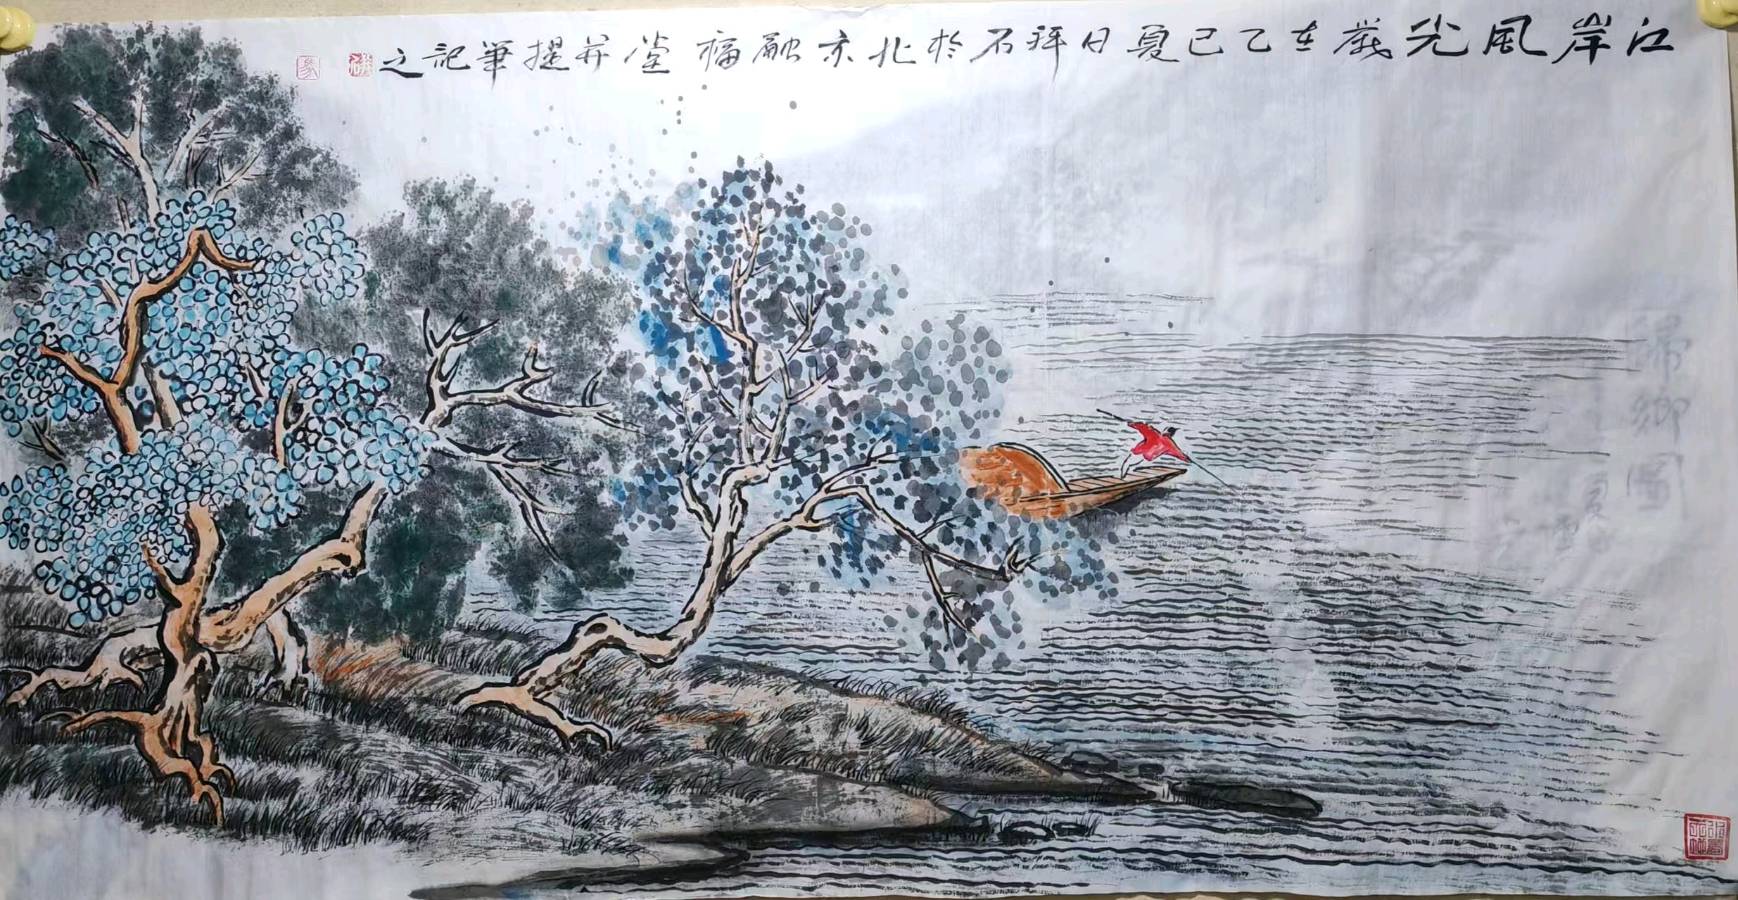 江岸風光歲在乙巳夏日拜石於北京融福堂并提筆記之
歸鄉圖